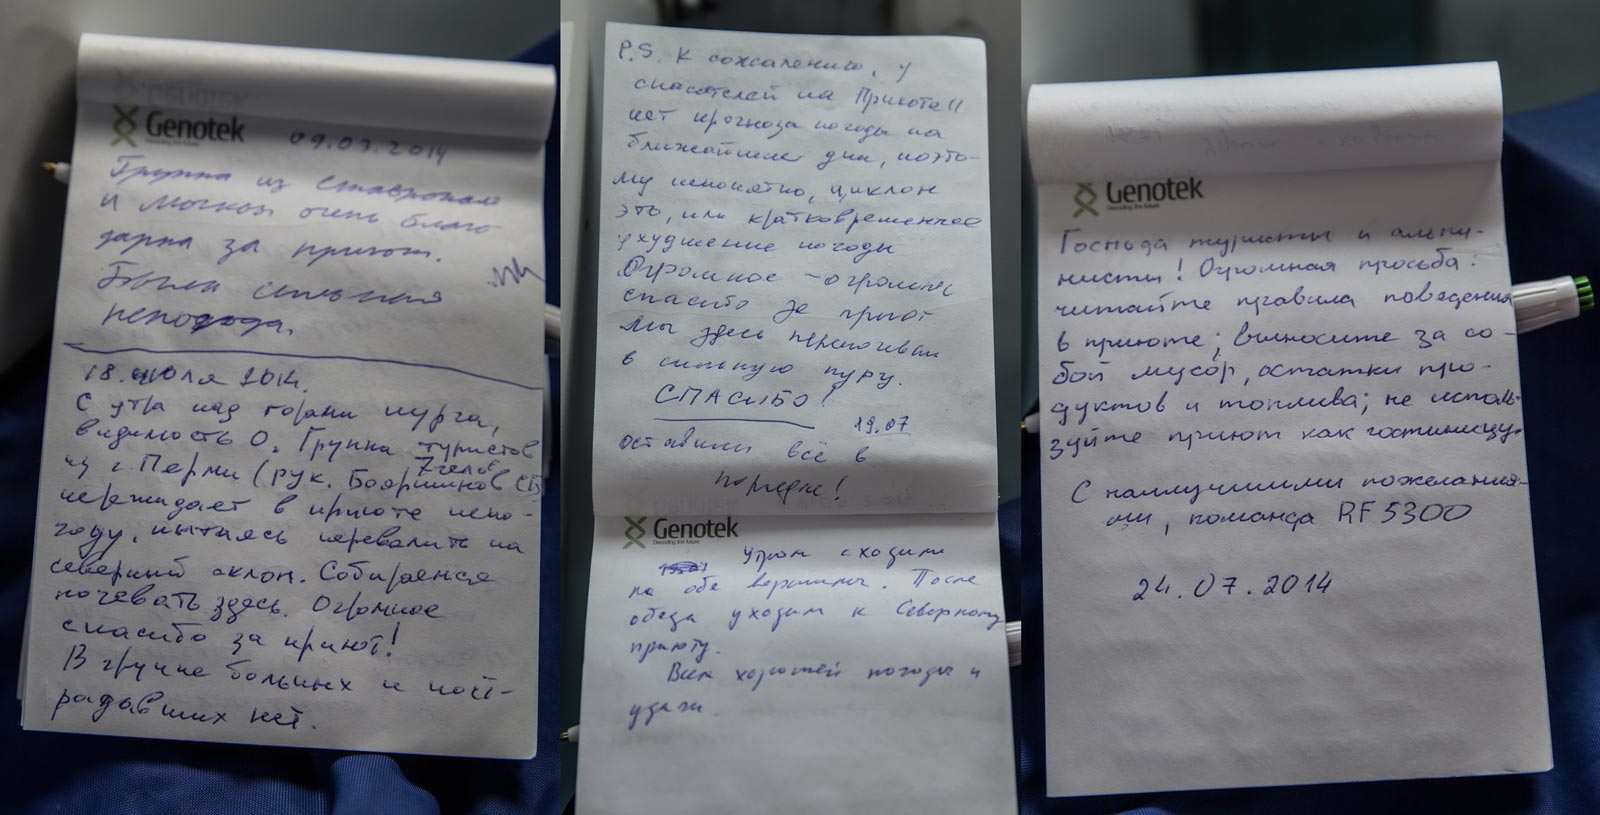 Genotek
Decoding the future
09.07.2014
Группа из Ставрополя
и Москвы очень благо
дарна за приют.
Была сильная
непогода.
18. июля 2014.
С утра над горами пурга,
видимость 0. Группа туристов
7 челов
из г. Перми (рук.
пережидает в приюте непо-
году, пытаясь перевалить на
северный склон. Собираемся
ночевать здесь. Огромное
спасибо за приют!
В группе больных и пост-
радавших нет.
P.S. К сожалению, у
спасателей на Приюте 11
нет прогноза погоды на
ближайшие дни, поэто-
му непонятно, циклон
это, или кратковременное
ухудшение погоды
Огромное-огромное
спасибо за приют
Мы здесь переночевали
в сильную пургу.
СПАСИБО!
19.07
оставили всё в
порядке!
Genotek
Decoding the future
Утром сходили
на обе вершины. После
обеда уходим к Северному
приюту.
Всем хорошей погоды и
удачи.
Genotek
Decoding the future
Господа туристы и альпи-
нисты! Огромная просьба:
читайте правила поведения
в приюте; выносите за со-
бой мусор, остатки про-
дуктов и топлива; не исполь-
зуйте приют как гостиницу.
С наилучшими пожелания-
ми, команда RF5300
24.07.2014